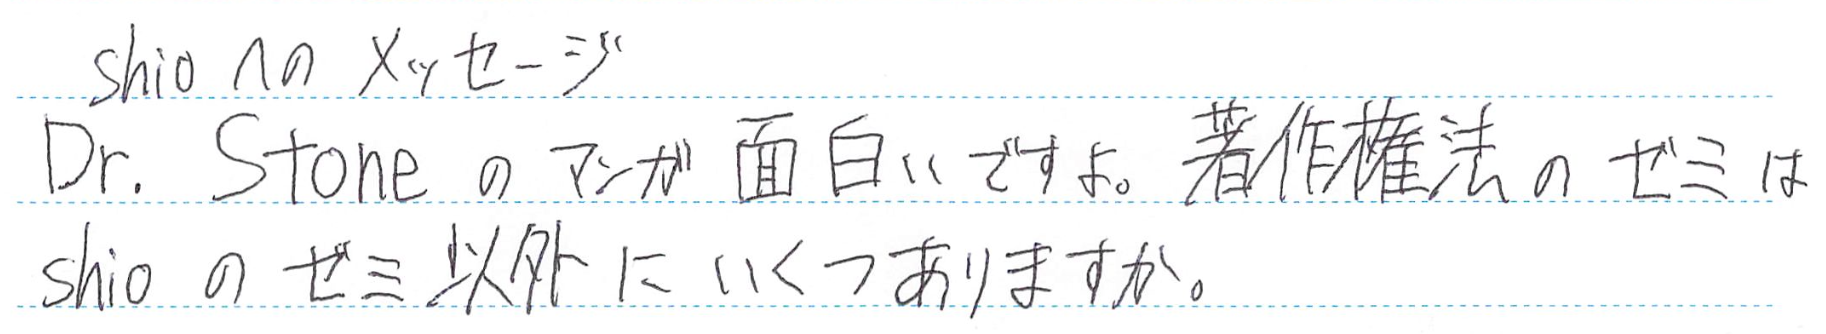 shioへのメッセージ
Dr. Stoneのマンガ面白いですよ。著作権法のゼミは
shioのゼミ以外にいくつありますか。